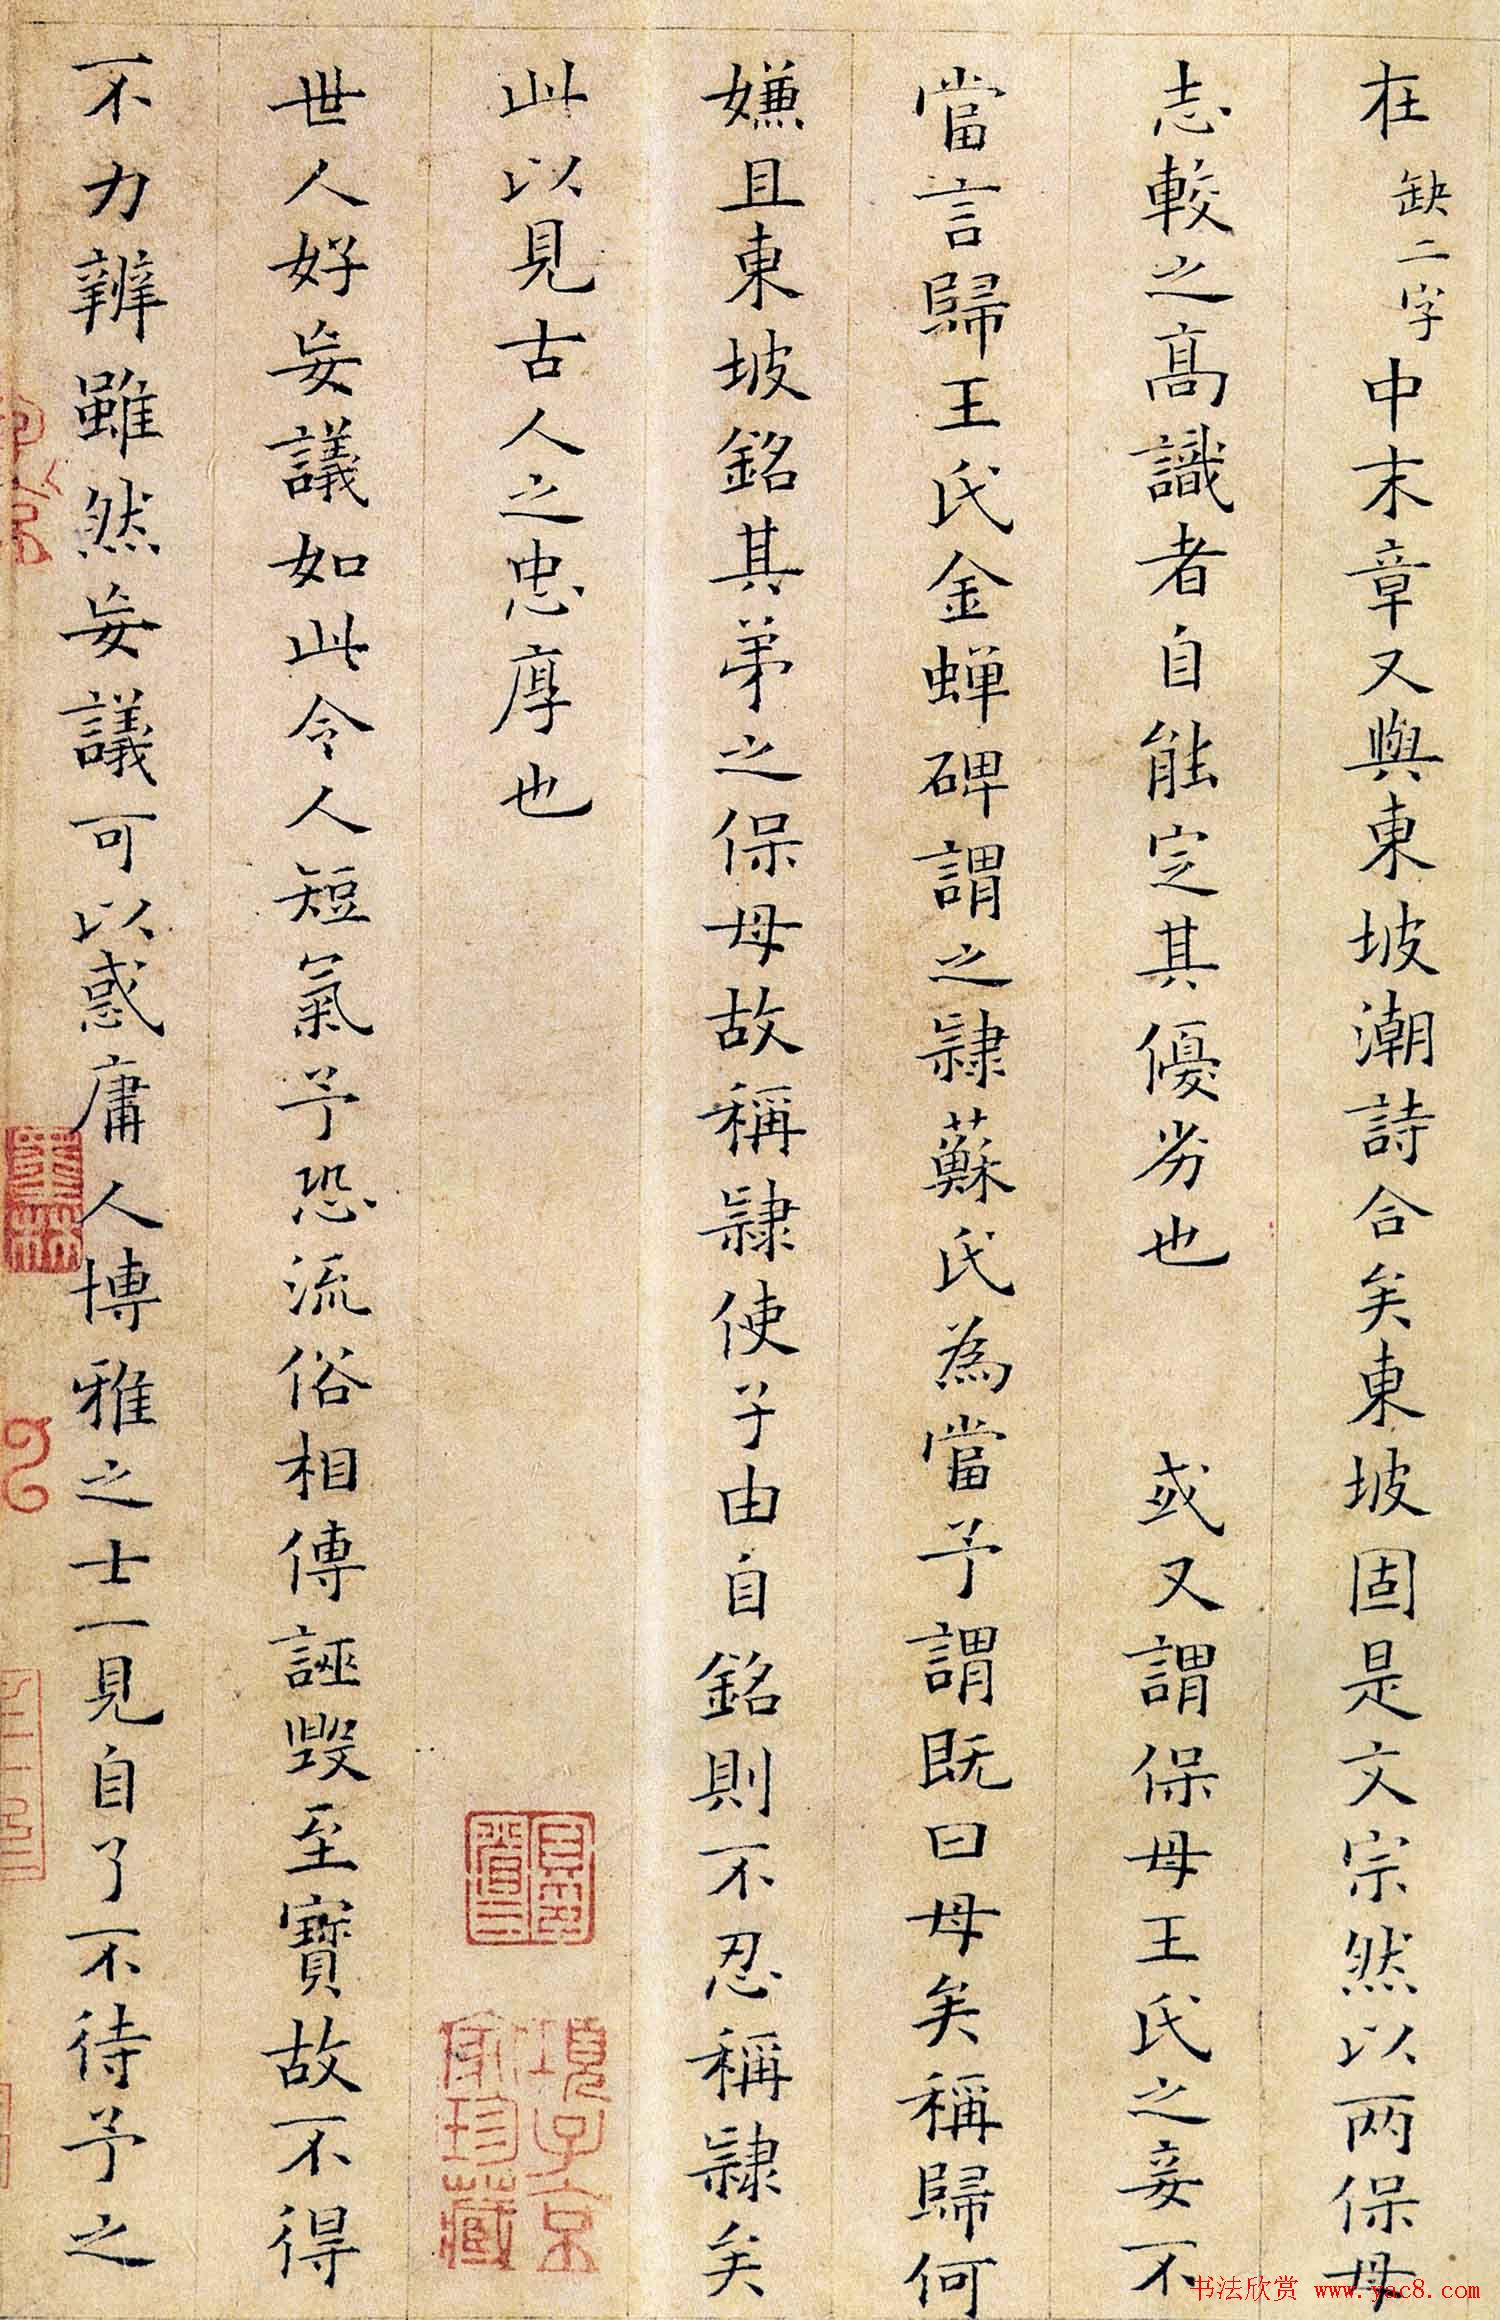 在缺二字中末章又與東坡潮詩合矣東坡固是文宗然以两保母
志較之髙識者自能定其優劣也 或又謂保母王氏之妾不
當言歸王氏金蟬碑謂之隷蘇氏為當予謂既曰母矣稱歸何
嫌且東坡銘其弟之保母故稱隷使子由自銘則不忍稱隷矣
此以見古人之忠厚也
世人好妄議如此令人短氣予恐流俗相傳誣毀至寳故不得
不力辨雖然妄議可以惑庸人博雅之士一見自了不待予之
項子京家珍藏
书法欣赏 www.yac8.com